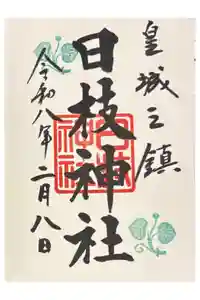 皇城之鎮
日枝神社
令和八年二月八日